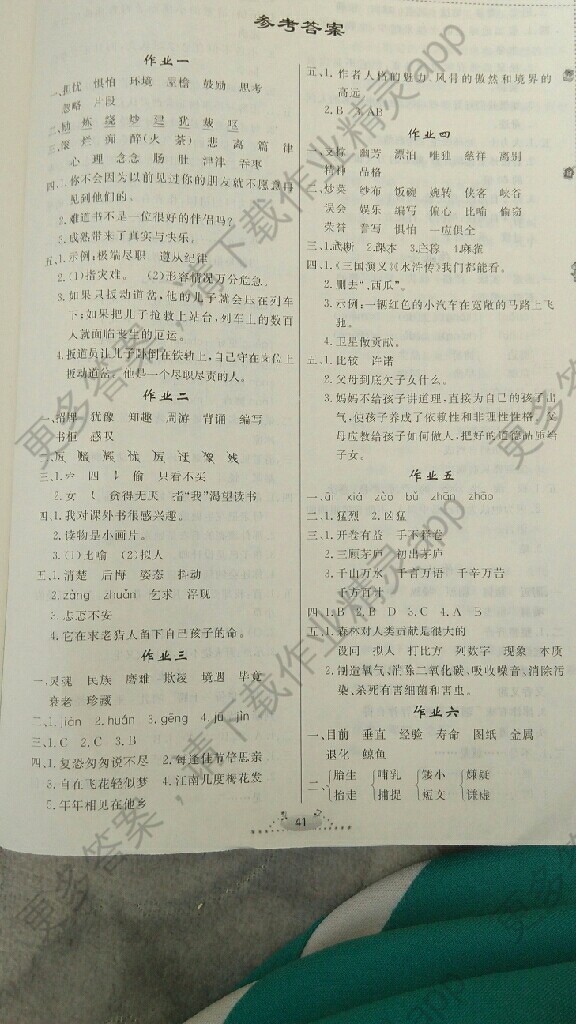 参考答案
作业一
一、担忧 惧怕 环境 屋檐 鼓励 思考
忽略 片段
心 理 念念 肠 肚 津津 吞枣
四、1.你不会因为以前见过你的朋友就不愿意再
见到他们的。
2.难道书不是一位很好的伴侣吗?
3.成熟带来了真实与快乐。
五、1.示例:极端尽职 遵从纪律
2.(1)指灾难。 (2)形容情况万分危急。
3.如果只扳动道岔,他的儿子就会压在列车
下;如果把儿子抢救上站台,列车上的数百
人就面临丧生的厄运。
4.扳道员让儿子卧倒在铁轨上,自己守在岗位上
扳动道岔。他是一个尽职尽责的人。
作业二
一、招呼 犹豫 知趣 周游 背诵 编写
书柜 感叹
三、1. 四 偷 只看不买
2.女 贪得无厌 指“我”渴望读书
四、1.我对课外书很感兴趣。
2.读物是小画片。
3.(1)比喻 (2)拟人
五、1.清楚 后悔 姿态 抖动
2.zāng zhuǎn 乞求
3.忐忑不安
4.它在求老猎人留下自己孩子的命。
作业三
一、灵魂 民族 磨难 欺凌 境遇 毕竟
衰老 珍藏
二、1.jiān 2.huán 3.gēng 4.jū jìn
三、1.C 2.C 3.B
四、1.复恐匆匆说不尽 2.每逢佳节倍思亲
3.自在飞花轻似梦 4.江南几度梅花发
5.年年相见在他乡
五、1.作者人格的魅力、风骨的傲然和境界的
高远。
2.B 3.AB
作业四
一、支撑 幽芳 漂泊 唯独 慈祥 离别
精神 品格
二、炒菜 纱布 饭碗 婉转 侠客 峡谷
误会 娱乐 编写 偏心 比喻 愉窃
荣誉 誊写 惧怕 一应俱全
三、1.武断 2.课本 3.支撑 4.麻雀
四、1.《三国演义》《水浒传》我们都能看。
2.删去“西瓜”。
3.示例:一辆红色的小汽车在宽敞的马路上飞
驰。
4.卫星做贡献。
五、1.比较 许诺
2.父母到底欠子女什么。
3.妈妈不给孩子讲道理,直接为自己的孩子出
气,使孩子养成了依赖性和非理性性格。父
母应教给孩子如何做人,把好的道德品质给
子女。
作业五
一、ā xiá zòo bǔ zhān zhāo
二、1.猛烈 2.凶猛
三、1.开卷有益 手不释卷
2.三顾茅庐 初出茅庐
3.千山万水 千言万语 千辛万苦
千方百计
四、1.B 2.B D 3.C 4.A B
五、1.森林对人类贡献是很大的
设问 拟人 打比方 列数字 现象 本质
2.制造氧气、消除二氧化碳、吸收噪音、消除污
染、杀死有害细菌和害虫。
作业六
一、目前 垂直 经验 寿命 图纸 金属
退化 鲸鱼
二、胎生 哺乳 矮小 嫌疑
抬走 捕捉 短文 谦虚
41
更多答案,请下载作业精灵app